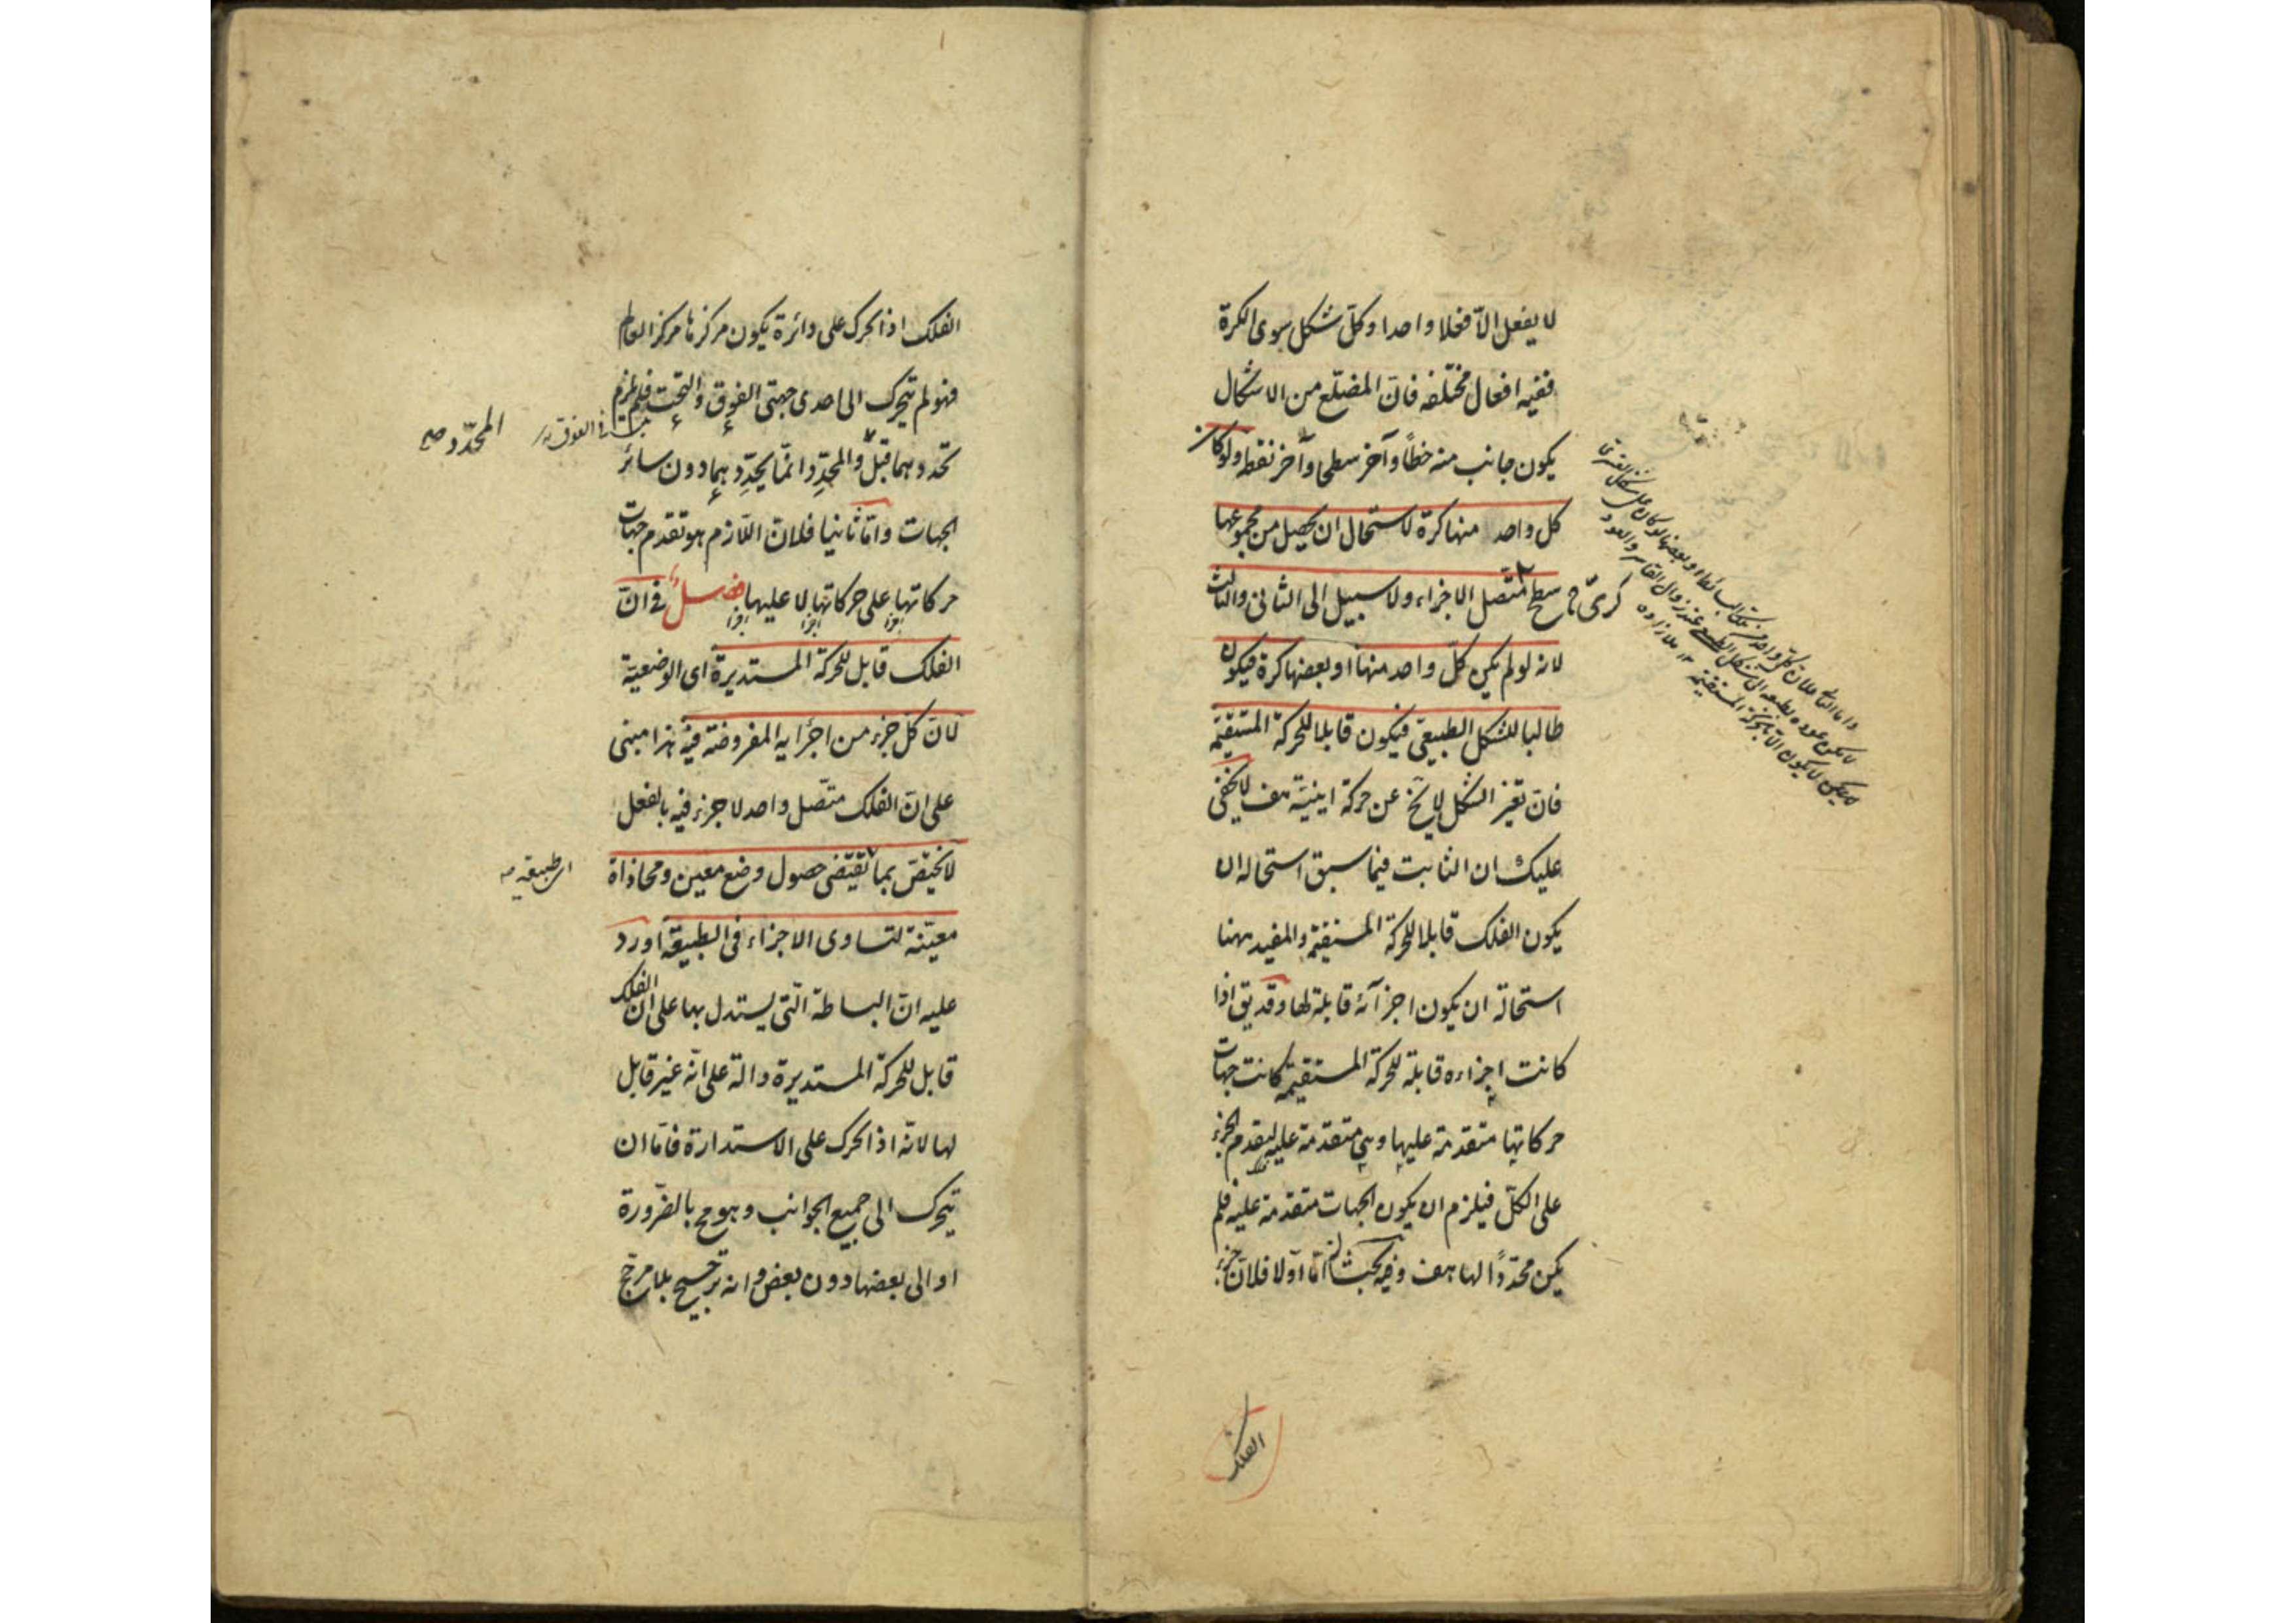 لا يفعل الّا فعلا واحدا وكلّ شكل سوى الكرة
ففيه افعال مختلفه فانّ المضلّع من الاشكال
يكون جانب منه خطاً وآخر سطحا وآخر نقطه ولو كان
كل واحد منها كرة لاستحال ان يحصل من مجموعها
سطح كرىّ متّصل الاجزاء ولا سبيل الى الثانى والثالث
لانه لو لم يكن كلّ واحد منها او بعضها كرة فيكون
طالبا للشكل الطبيعى فيكون قابلا للحركة المستقيمة
فانّ تغيّر الشكل لا يخ عن حركة اينيّة هف لا يخفى
عليك ان الثابت فيما سبق استحاله ان
يكون الفلك قابلا للحركة المستقيمة والمفيد ههنا
استحالة ان يكون اجزآئه قابلة لها وقد يق اذا
كانت اجزاءه قابلة للحركة المستقيمة كانت جهات
حركاتها متقدمة عليها وهى متقدمة عليه لتقدم الجزء
على الكلّ فيلزم ان يكون الجهات متقدمة عليه فلم
يكن محدّدًا لها هف وفيه بحث امّا اوّلا فلانّ جزء
الفلك
الفلك اذا تحرك على دائرة يكون مركزها مركز العالم
فهو لم يتحرك الى احدى جهتى الفوق والتحت فلم يلزم
تحدد هما قبل والمحدّد انّما يحدّد بهما دون سائر
المحدّد صح
الجهات وامّا ثانيا فلانّ اللّازم هو تقدم جهات
حركاتها على حركاتها لا عليها فصلٌ فى انّ
الفلك قابل للحركة المستديرة اى الوضعيّة
لانّ كلّ جزء من اجزايه المفروضة فيه هذا مبنى
على انّ الفلك متّصل واحد لا جزء فيه بالفعل
لا يختصّ بما تقتضى حصول وضع معين ومحاذاة
معيّنة لتساوى الاجزاء فى الطبيعة اورد
عليه انّ البساطة الّتى يستدل بها على انّ الفلك
قابل للحركة المستديرة دالة على انّه غير قابل
لها لانّه اذا تحرك على الاستدارة فامّا ان
يتحرك الى جميع الجوانب وهو مح بالضّرورة
او الى بعضها دون بعض وانه ترجيح بلا مرجّح